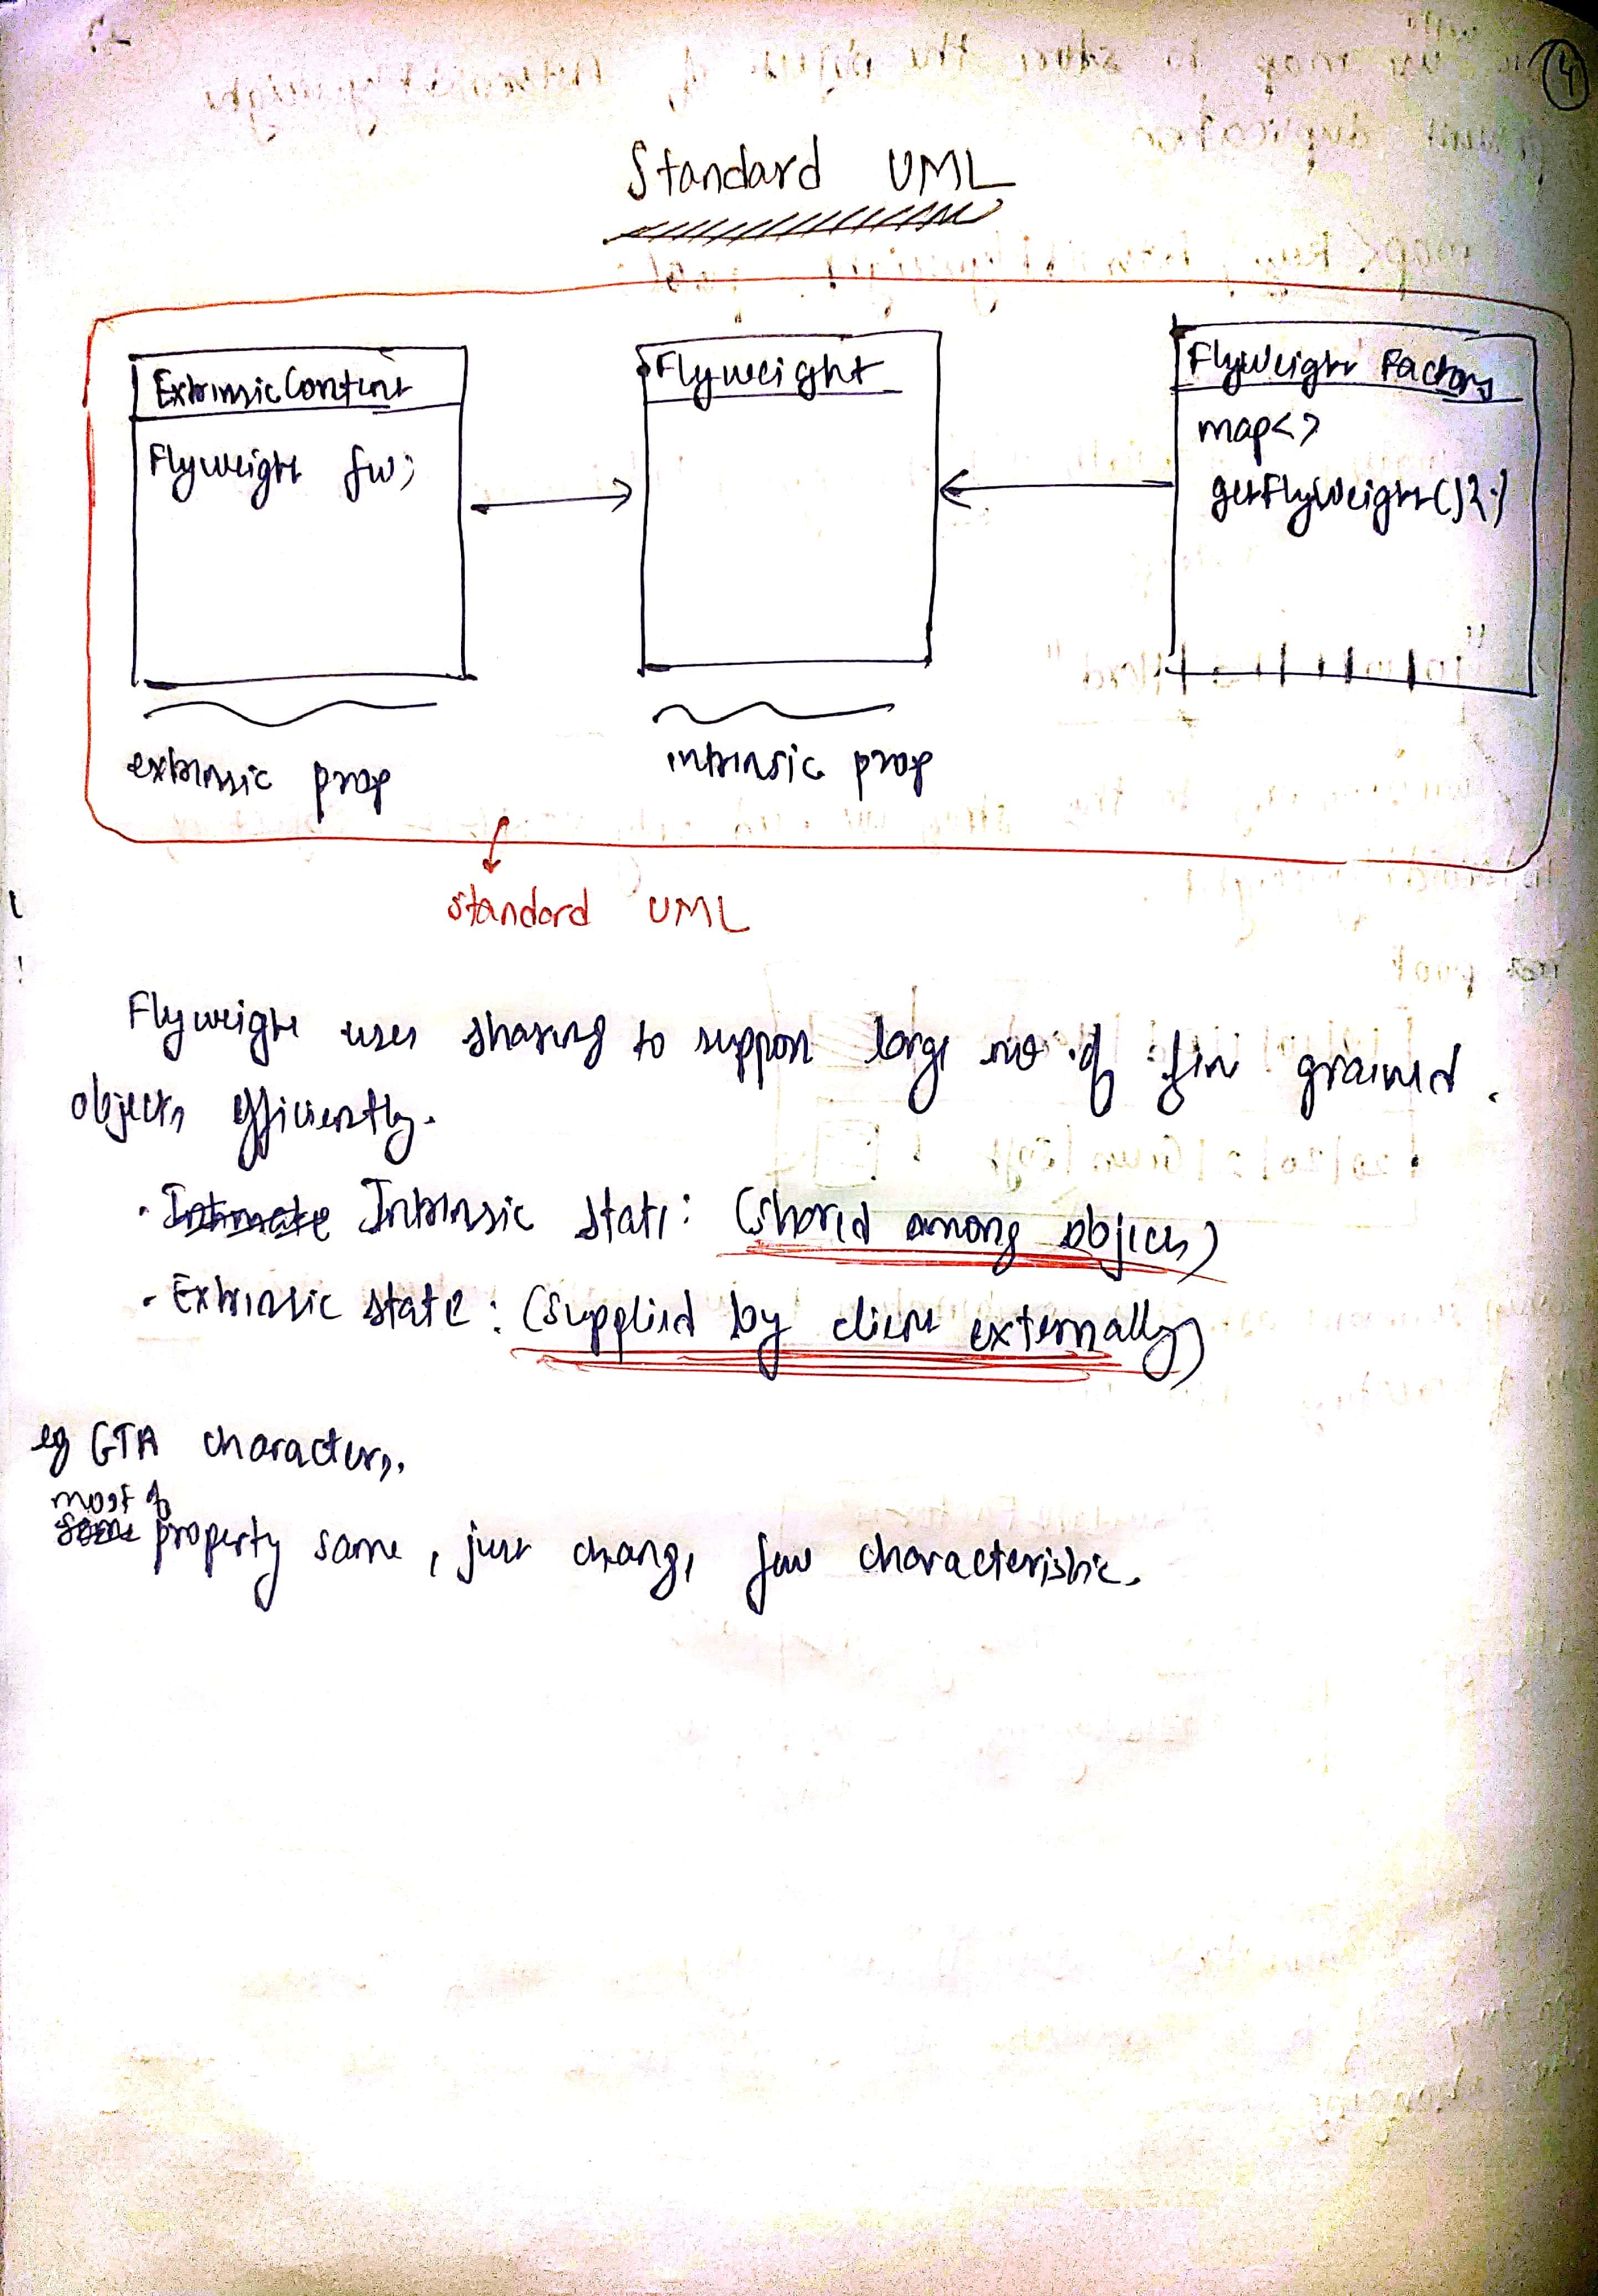 4
Standard UML
ExtrinsicContext
Flyweight fw;
Flyweight
Flyweight Factory
map<>
getFlyWeight(){.}
extrinsic prop
intrinsic prop
standard UML
Flyweight uses sharing to support large no of fine grained
objects efficiently.
· Intrinsic state: (shared among objects)
· Extrinsic state: (supplied by client externally)
eg GTA characters.
most of
some property same, just change few characteristic.